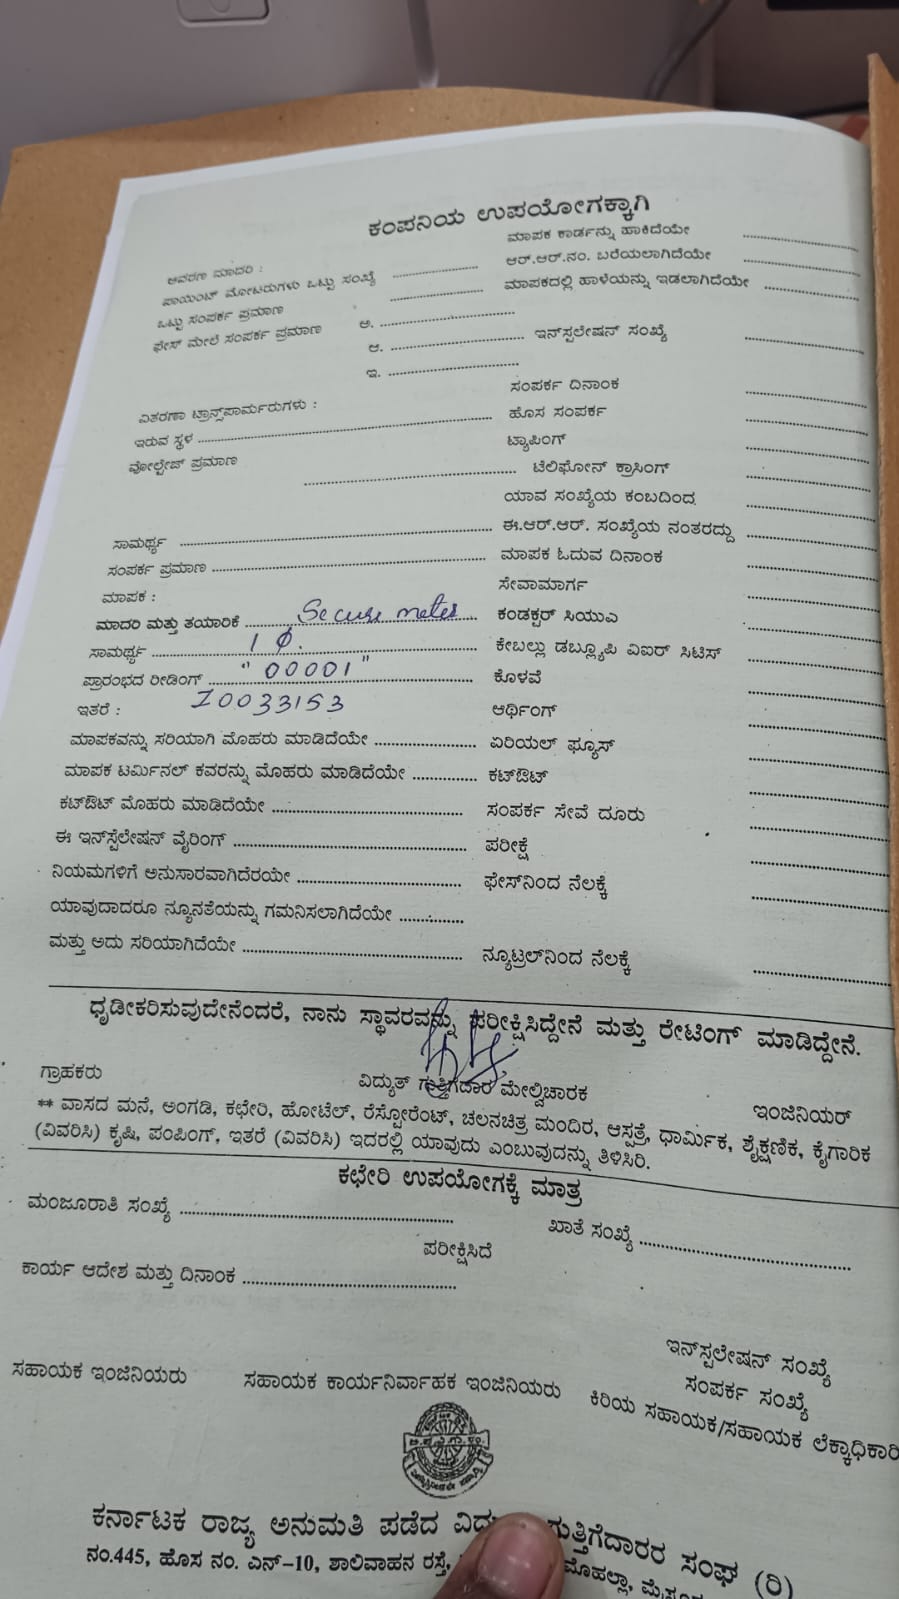 ಕಂಪನಿಯ ಉಪಯೋಗಕ್ಕಾಗಿ
ಮಾಪಕ ಕಾರ್ಡನ್ನು ಹಾಕಿದೆಯೇ
ಆವರಣ ಮಾದರಿ : ಆರ್.ಆರ್.ನಂ. ಬರೆಯಲಾಗಿದೆಯೇ
ಪಾಯಿಂಟ್ ಮೋಟರುಗಳು ಒಟ್ಟು ಸಂಖ್ಯೆ ಮಾಪಕದಲ್ಲಿ ಹಾಳೆಯನ್ನು ಇಡಲಾಗಿದೆಯೇ
ಒಟ್ಟು ಸಂಪರ್ಕ ಪ್ರಮಾಣ
ಫೇಸ್ ಮೇಲೆ ಸಂಪರ್ಕ ಪ್ರಮಾಣ ಅ.
ಆ. ಇನ್‌ಸ್ಪಲೇಷನ್ ಸಂಖ್ಯೆ
ಇ.
ಸಂಪರ್ಕ ದಿನಾಂಕ
ವಿತರಣಾ ಟ್ರಾನ್ಸ್‌ಪಾರ್ಮರುಗಳು : ಹೊಸ ಸಂಪರ್ಕ
ಇರುವ ಸ್ಥಳ ಟ್ಯಾಪಿಂಗ್
ವೋಲ್ಟೇಜ್ ಪ್ರಮಾಣ ಟೆಲಿಫೋನ್ ಕ್ರಾಸಿಂಗ್
ಯಾವ ಸಂಖ್ಯೆಯ ಕಂಬದಿಂದ
ಸಾಮರ್ಥ್ಯ ಈ.ಆರ್.ಆರ್. ಸಂಖ್ಯೆಯ ನಂತರದ್ದು
ಸಂಪರ್ಕ ಪ್ರಮಾಣ ಮಾಪಕ ಓದುವ ದಿನಾಂಕ
ಮಾಪಕ : ಸೇವಾಮಾರ್ಗ
ಮಾದರಿ ಮತ್ತು ತಯಾರಿಕೆ Secure meter ಕಂಡಕ್ಟರ್ ಸಿಯುಎ
ಸಾಮರ್ಥ್ಯ 1 Φ. ಕೇಬಲ್ಲು ಡಬ್ಲ್ಯೂಪಿ ವಿಐರ್ ಸಿಟಿಸ್
ಪ್ರಾರಂಭದ ರೀಡಿಂಗ್ "00001" ಕೊಳವೆ
ಇತರೆ : 10033153 ಆರ್ಥಿಂಗ್
ಮಾಪಕವನ್ನು ಸರಿಯಾಗಿ ಮೊಹರು ಮಾಡಿದೆಯೇ ಏರಿಯಲ್ ಫ್ಯೂಸ್
ಮಾಪಕ ಟರ್ಮಿನಲ್ ಕವರನ್ನು ಮೊಹರು ಮಾಡಿದೆಯೇ ಕಟ್‌ಔಟ್
ಕಟ್‌ಔಟ್ ಮೊಹರು ಮಾಡಿದೆಯೇ ಸಂಪರ್ಕ ಸೇವೆ ದೂರು
ಈ ಇನ್‌ಸ್ಪೆಲೇಷನ್ ವೈರಿಂಗ್ ಪರೀಕ್ಷೆ
ನಿಯಮಗಳಿಗೆ ಅನುಸಾರವಾಗಿದೆರಯೇ ಫೇಸ್‌ನಿಂದ ನೆಲಕ್ಕೆ
ಯಾವುದಾದರೂ ನ್ಯೂನತೆಯನ್ನು ಗಮನಿಸಲಾಗಿದೆಯೇ
ಮತ್ತು ಅದು ಸರಿಯಾಗಿದೆಯೇ ನ್ಯೂಟ್ರಲ್‌ನಿಂದ ನೆಲಕ್ಕೆ
ಧೃಡೀಕರಿಸುವುದೇನೆಂದರೆ, ನಾನು ಸ್ಥಾವರವನ್ನು ಪರೀಕ್ಷಿಸಿದ್ದೇನೆ ಮತ್ತು ರೇಟಿಂಗ್ ಮಾಡಿದ್ದೇನೆ.
ಗ್ರಾಹಕರು ವಿದ್ಯುತ್ ಗುತ್ತಿಗೆದಾರ ಮೇಲ್ವಿಚಾರಕ ಇಂಜಿನಿಯರ್
** ವಾಸದ ಮನೆ, ಅಂಗಡಿ, ಕಛೇರಿ, ಹೋಟೆಲ್, ರೆಸ್ಟೋರೆಂಟ್, ಚಲನಚಿತ್ರ ಮಂದಿರ, ಆಸ್ಪತ್ರೆ, ಧಾರ್ಮಿಕ, ಶೈಕ್ಷಣಿಕ, ಕೈಗಾರಿಕ
(ವಿವರಿಸಿ) ಕೃಷಿ, ಪಂಪಿಂಗ್, ಇತರೆ (ವಿವರಿಸಿ) ಇದರಲ್ಲಿ ಯಾವುದು ಎಂಬುವುದನ್ನು ತಿಳಿಸಿರಿ.
ಕಛೇರಿ ಉಪಯೋಗಕ್ಕೆ ಮಾತ್ರ
ಮಂಜೂರಾತಿ ಸಂಖ್ಯೆ ಖಾತೆ ಸಂಖ್ಯೆ
ಪರೀಕ್ಷಿಸಿದೆ
ಕಾರ್ಯ ಆದೇಶ ಮತ್ತು ದಿನಾಂಕ
ಇನ್‌ಸ್ಪಲೇಷನ್ ಸಂಖ್ಯೆ
ಸಂಪರ್ಕ ಸಂಖ್ಯೆ
ಸಹಾಯಕ ಇಂಜಿನಿಯರು ಸಹಾಯಕ ಕಾರ್ಯನಿರ್ವಾಹಕ ಇಂಜಿನಿಯರು ಕಿರಿಯ ಸಹಾಯಕ/ಸಹಾಯಕ ಲೆಕ್ಕಾಧಿಕಾರಿ
ಕರ್ನಾಟಕ ರಾಜ್ಯ ಅನುಮತಿ ಪಡೆದ ಗುತ್ತಿಗೆದಾರರ ಸಂಘ (ರಿ)
ನಂ.445, ಹೊಸ ನಂ. ಎನ್-10, ಶಾಲಿವಾಹನ ರಸ್ತೆ, ಮೊಹಲ್ಲಾ,